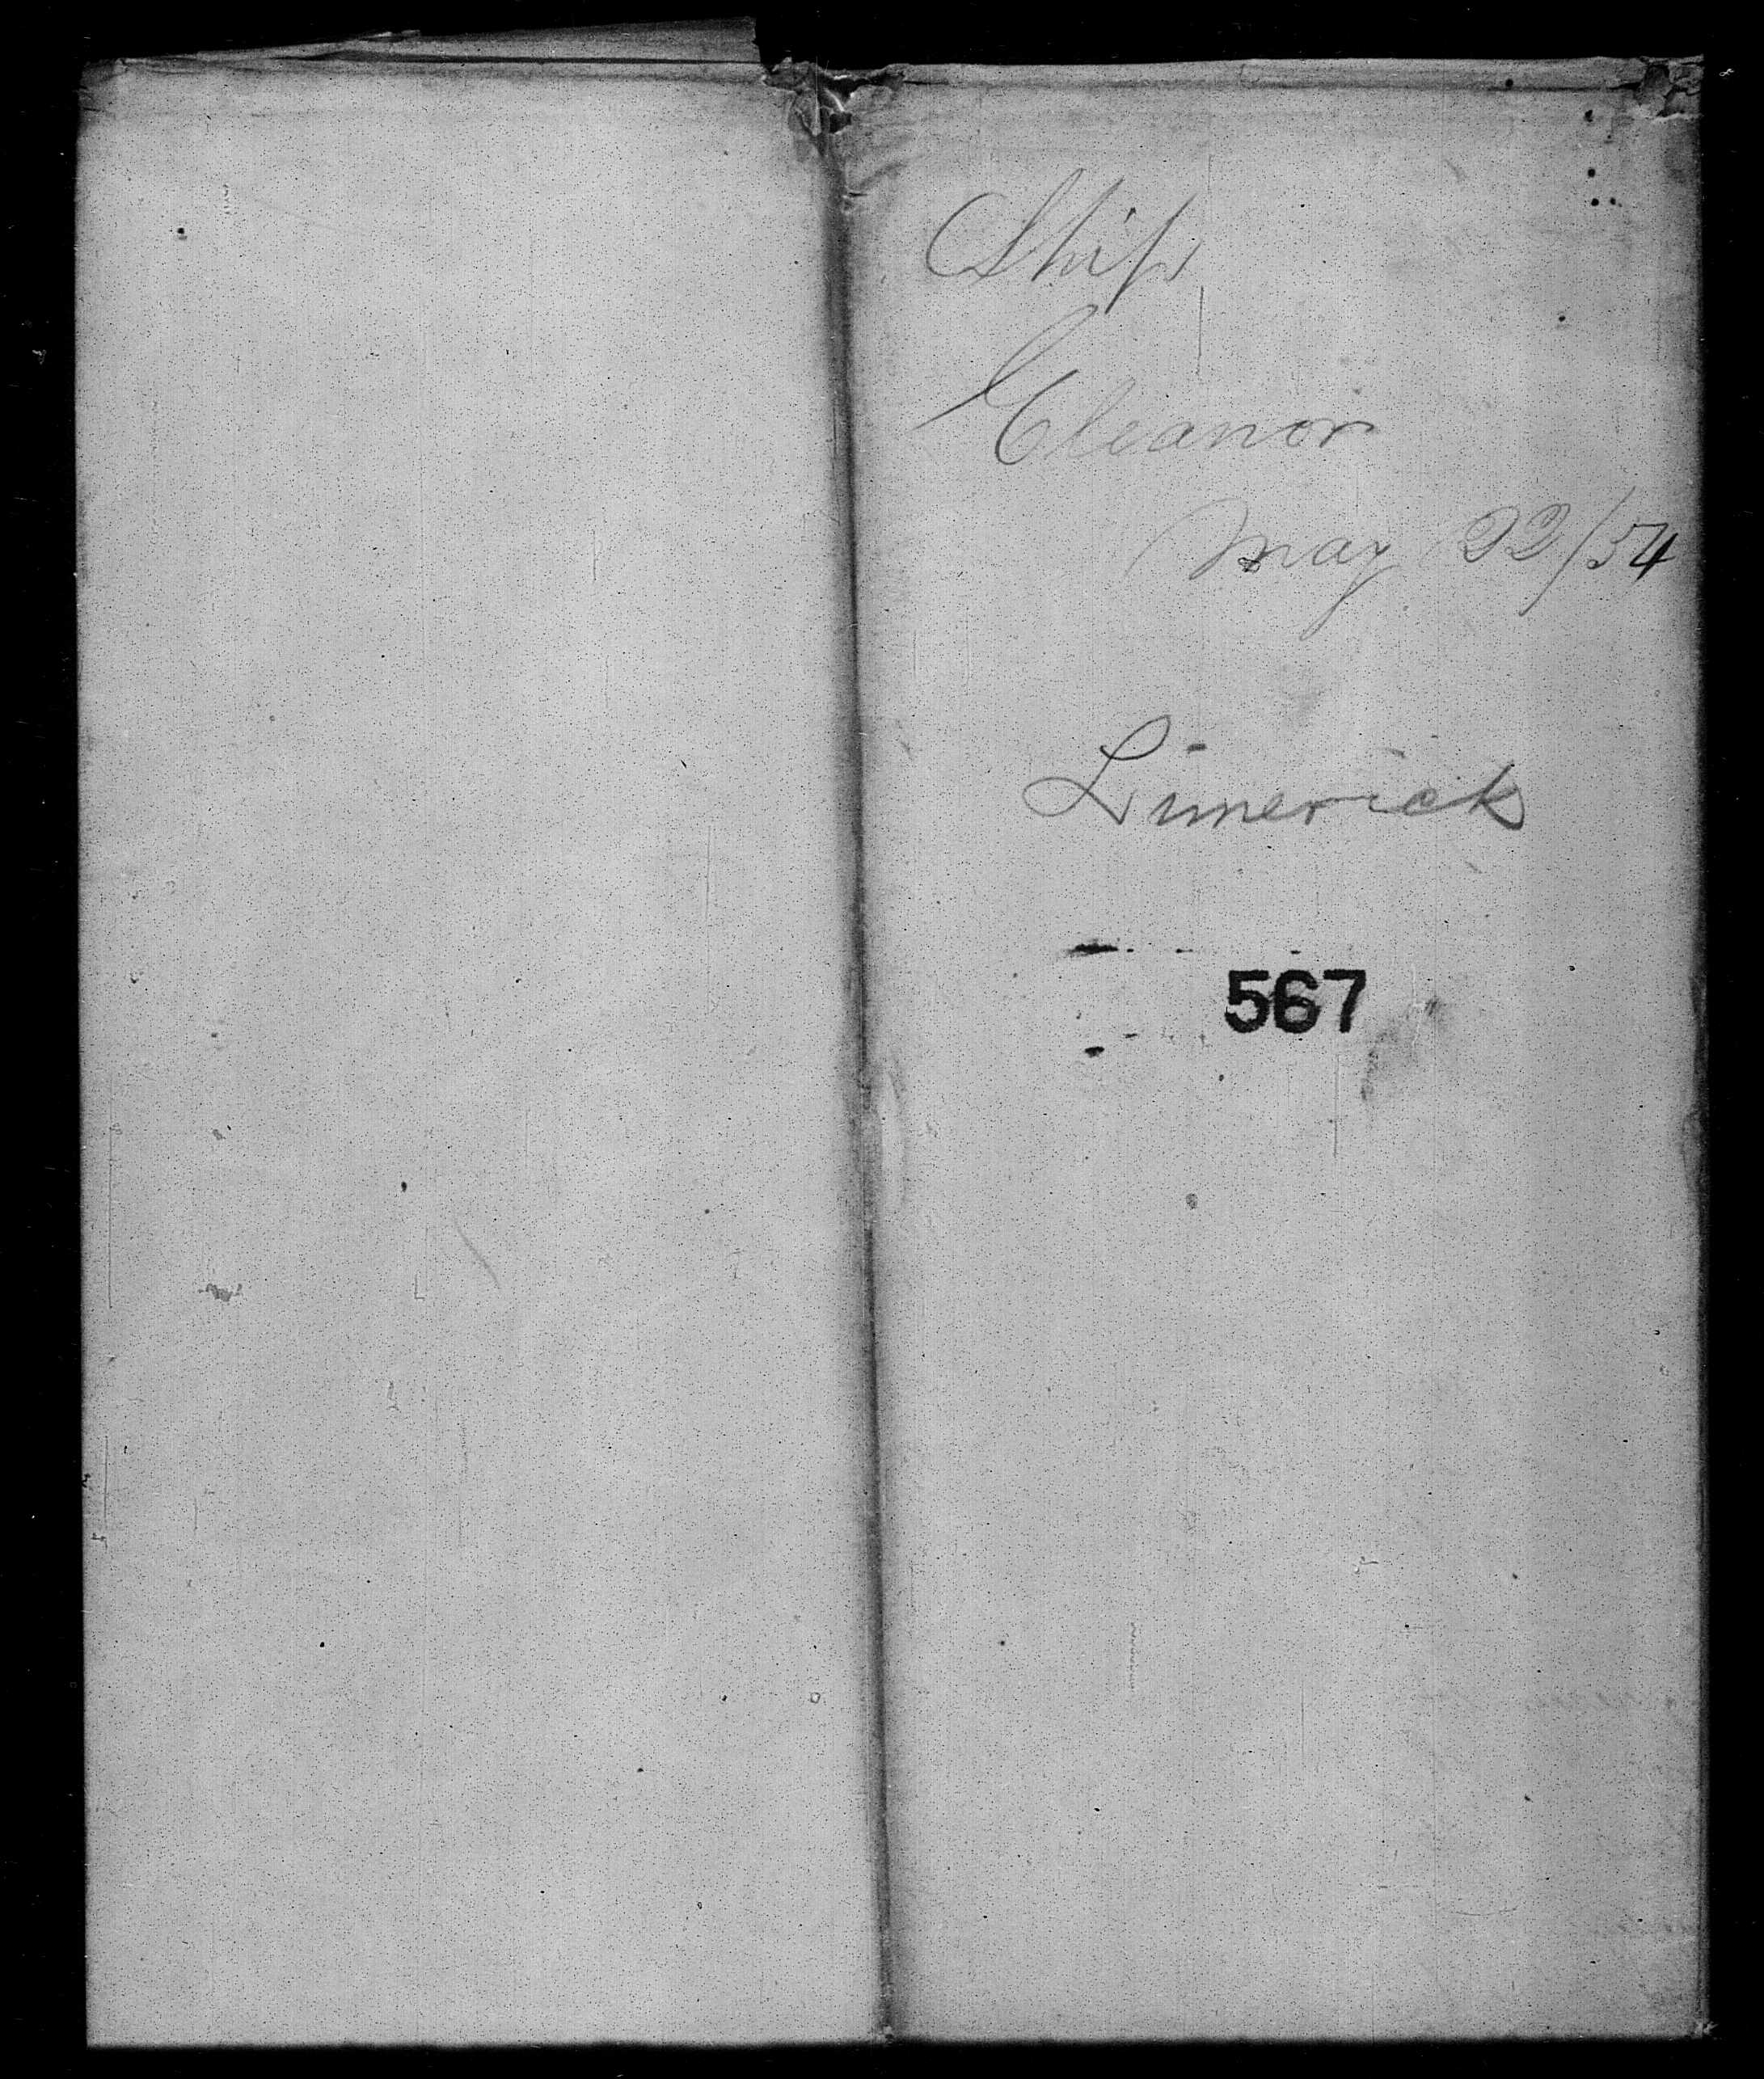 Ship
Eleanor
May 22/54
Limerick
567